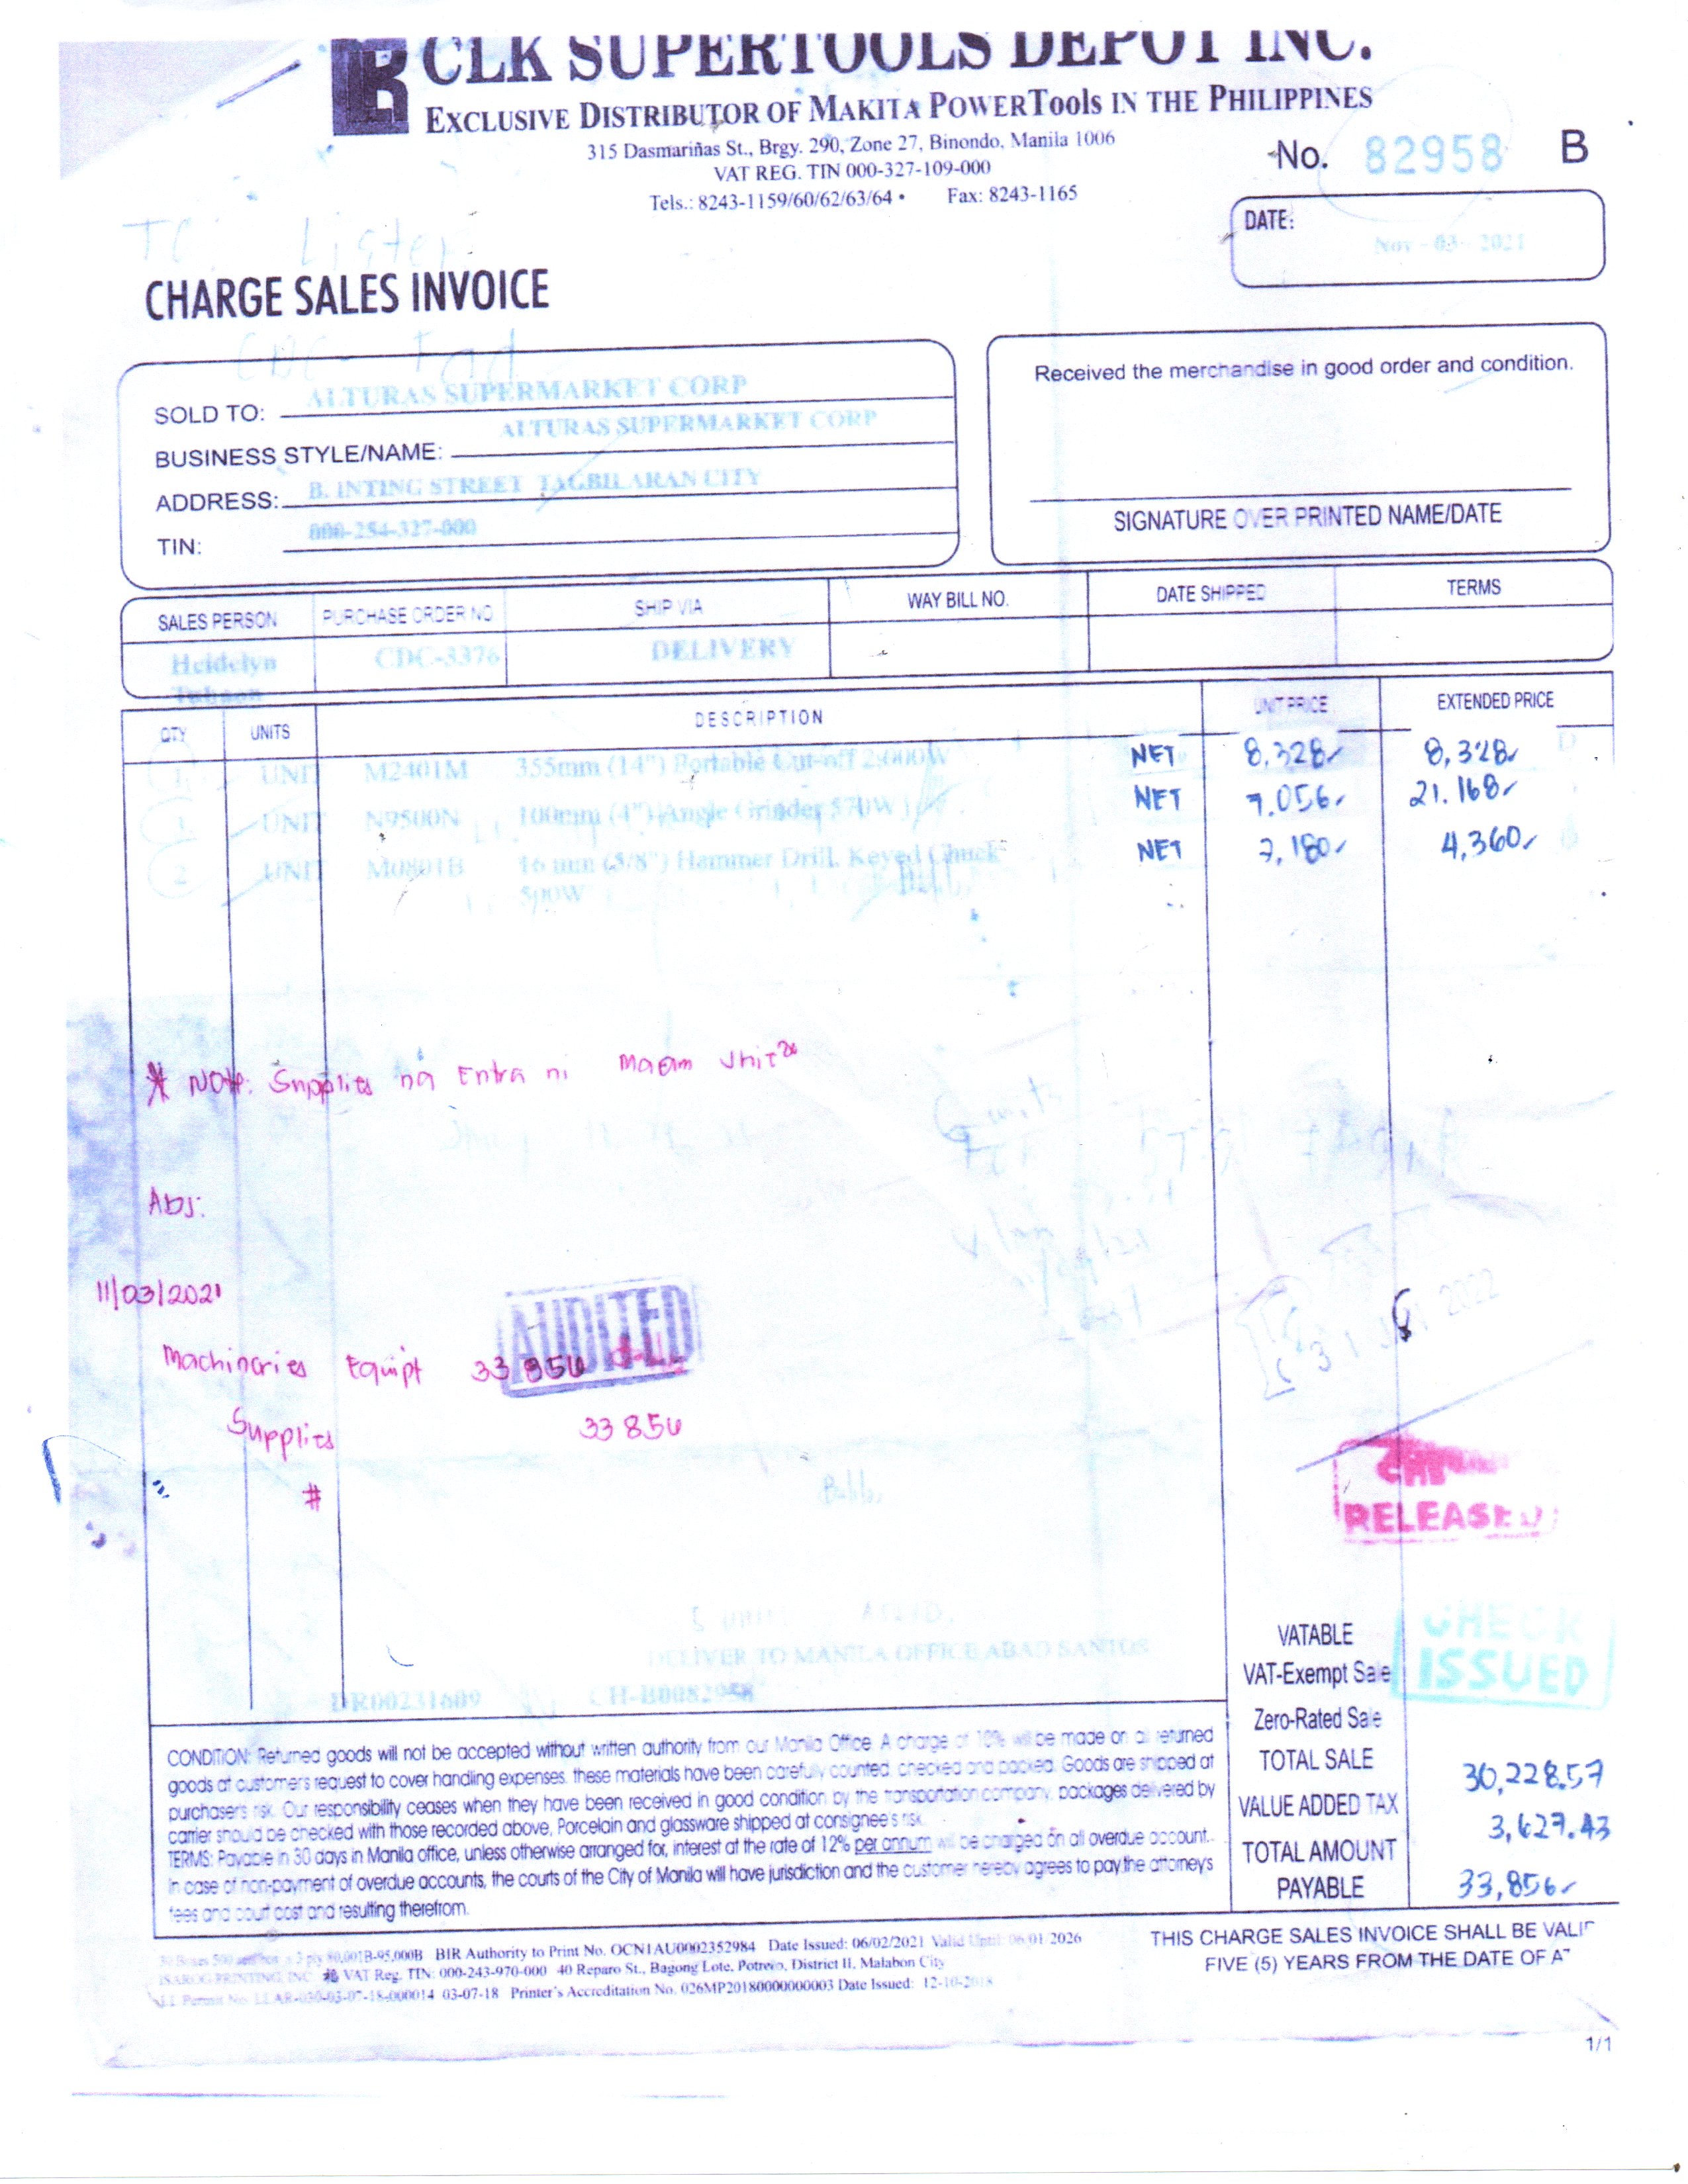 CLK SUPERTOOLS DEPOT INC.
EXCLUSIVE DISTRIBUTOR OF MAKITA POWERTools IN THE PHILIPPINES
315 Dasmariñas St., Brgy. 290, Zone 27, Binondo, Manila 1006
VAT REG. TIN 000-327-109-000
Tels.: 8243-1159/60/62/63/64 • Fax: 8243-1165
No. 82958 B
DATE:
Nov - 03 - 2021
CHARGE SALES INVOICE
SOLD TO: ALTURAS SUPERMARKET CORP
BUSINESS STYLE/NAME: ALTURAS SUPERMARKET CORP
ADDRESS: B. INTING STREET TAGBILARAN CITY
TIN: 000-254-327-000
Received the merchandise in good order and condition.
SIGNATURE OVER PRINTED NAME/DATE
SALES PERSON PURCHASE ORDER NO SHIP VIA WAY BILL NO. DATE SHIPPED TERMS
Heidelyn CDC-3376 DELIVERY
QTY UNITS DESCRIPTION UNIT PRICE EXTENDED PRICE
1 UNIT M2401M 355mm (14") Portable Cut-off 2000W NET 8,328 8,328
3 UNIT N9500N 100mm (4") Angle Grinder 570W NET 7.056 21.168
2 UNIT M0801B 16 mm (5/8") Hammer Drill, Keyed Chuck NET 2,180 4,360
500W
* Note: Supplies na Entra ni Maam
Adj:
11/03/2021
Machineries Equipt 33 856
AUDITED
Supplies 33 856
#
RELEASED
CHECK
ISSUED
DELIVER TO MANILA OFFICE ABAD SANTOS
DR00231609 CH-B0082958
VATABLE
VAT-Exempt Sale
Zero-Rated Sale
TOTAL SALE 30,228.57
VALUE ADDED TAX 3,627.43
TOTAL AMOUNT
PAYABLE 33,856
CONDITION: Returned goods will not be accepted without written authority from our Manila Office. A charge of 10% will be made on all returned
goods at customers request to cover handling expenses. these materials have been carefully counted, checked and packed. Goods are shipped at
purchaser's risk. Our responsibility ceases when they have been received in good condition by the transportation company, packages delivered by
carrier should be checked with those recorded above, Porcelain and glassware shipped at consignee's risk.
TERMS: Payable in 30 days in Manila office, unless otherwise arranged for, interest at the rate of 12% per annum will be charged on all overdue account.
In case of non-payment of overdue accounts, the courts of the City of Manila will have jurisdiction and the customer hereby agrees to pay the attorneys
fees and court cost and resulting therefrom.
BIR Authority to Print No. OCN1AU0002352984 Date Issued: 06/02/2021 Valid Until: 06/01/2026
VAT Reg. TIN: 000-243-970-000 40 Reparo St., Bagong Lote, Potrero, District II, Malabon City
03-07-18 Printer's Accreditation No. 026MP20180000000003 Date Issued: 12-10-2018
THIS CHARGE SALES INVOICE SHALL BE VALID
FIVE (5) YEARS FROM THE DATE OF A
1/1